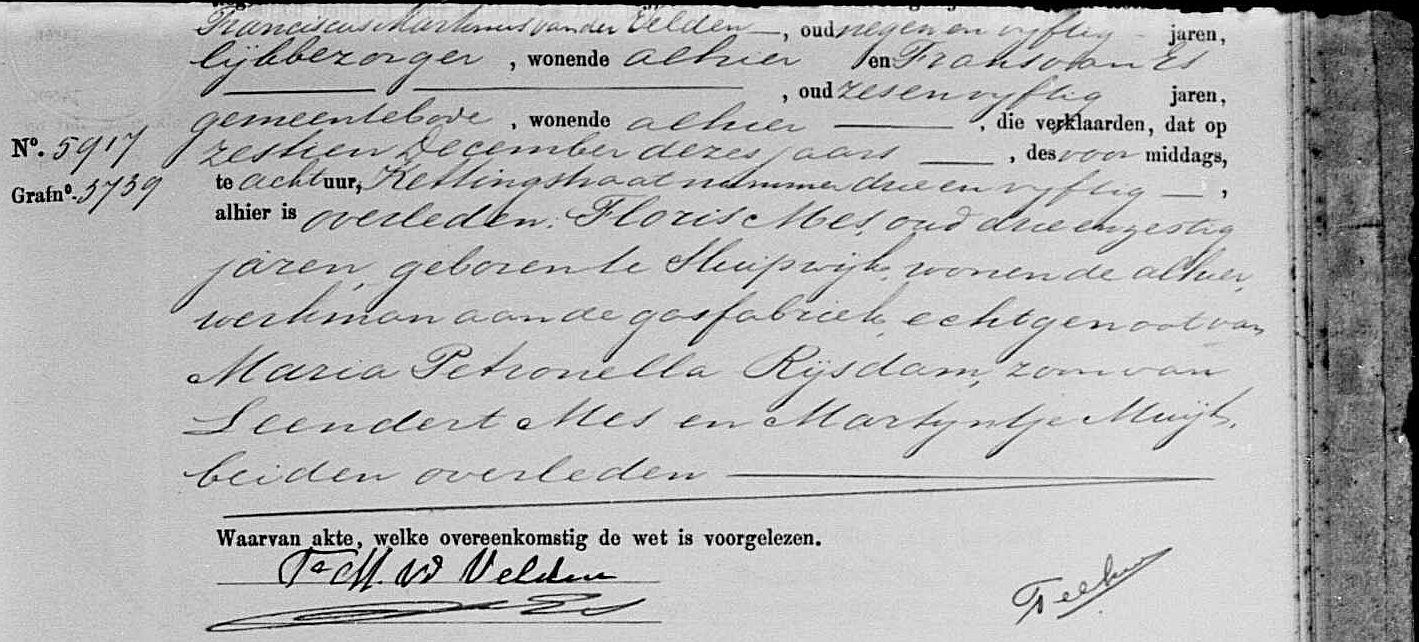 Franciscus Martinus van der Velden, oud negen en vyftig jaren,
lijkbezorger, wonende alhier en Frans van Es
, oud zes en vyftig jaren,
gemeentebode, wonende alhier, die verklaarden, dat op
No. 5917
zestien December dezes jaars, des voor middags,
Grafno. 3739
te acht uur, Kettingstraat nummer drie en vyftig,
alhier is overleden: Floris Mes, oud drie en zestig
jaren, geboren te Sluipwijk, wonende alhier,
werkman aan de gasfabriek, echtgenoot van
Maria Petronella Rijsdam, zoon van
Leendert Mes en Martyntje Muijt,
beiden overleden
Waarvan akte, welke overeenkomstig de wet is voorgelezen.
F. M. vd Velden
Es